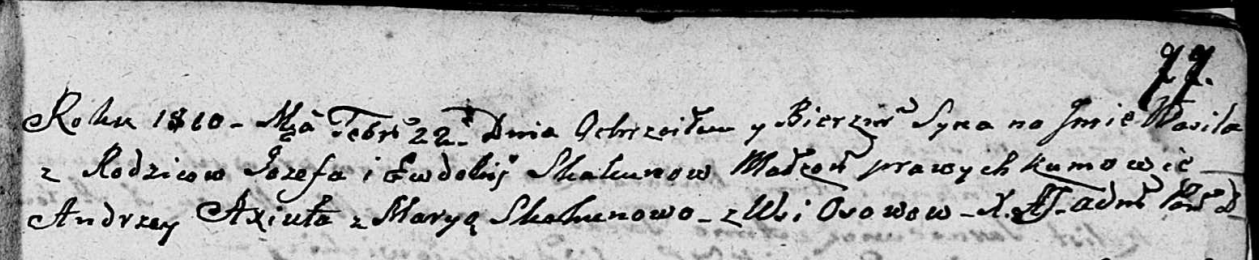 77.
Roku 1810 – Mca Febr 22 Dnia Ochrzciłem y Bierzm Syna na Jmie Wasila
z Rodzicow Jozefa i Ewdokij Skakunow Małżon prawych kumowie
Andrzey Axiuta z Maryą Skakunowo – z Wsi Osowow – X.